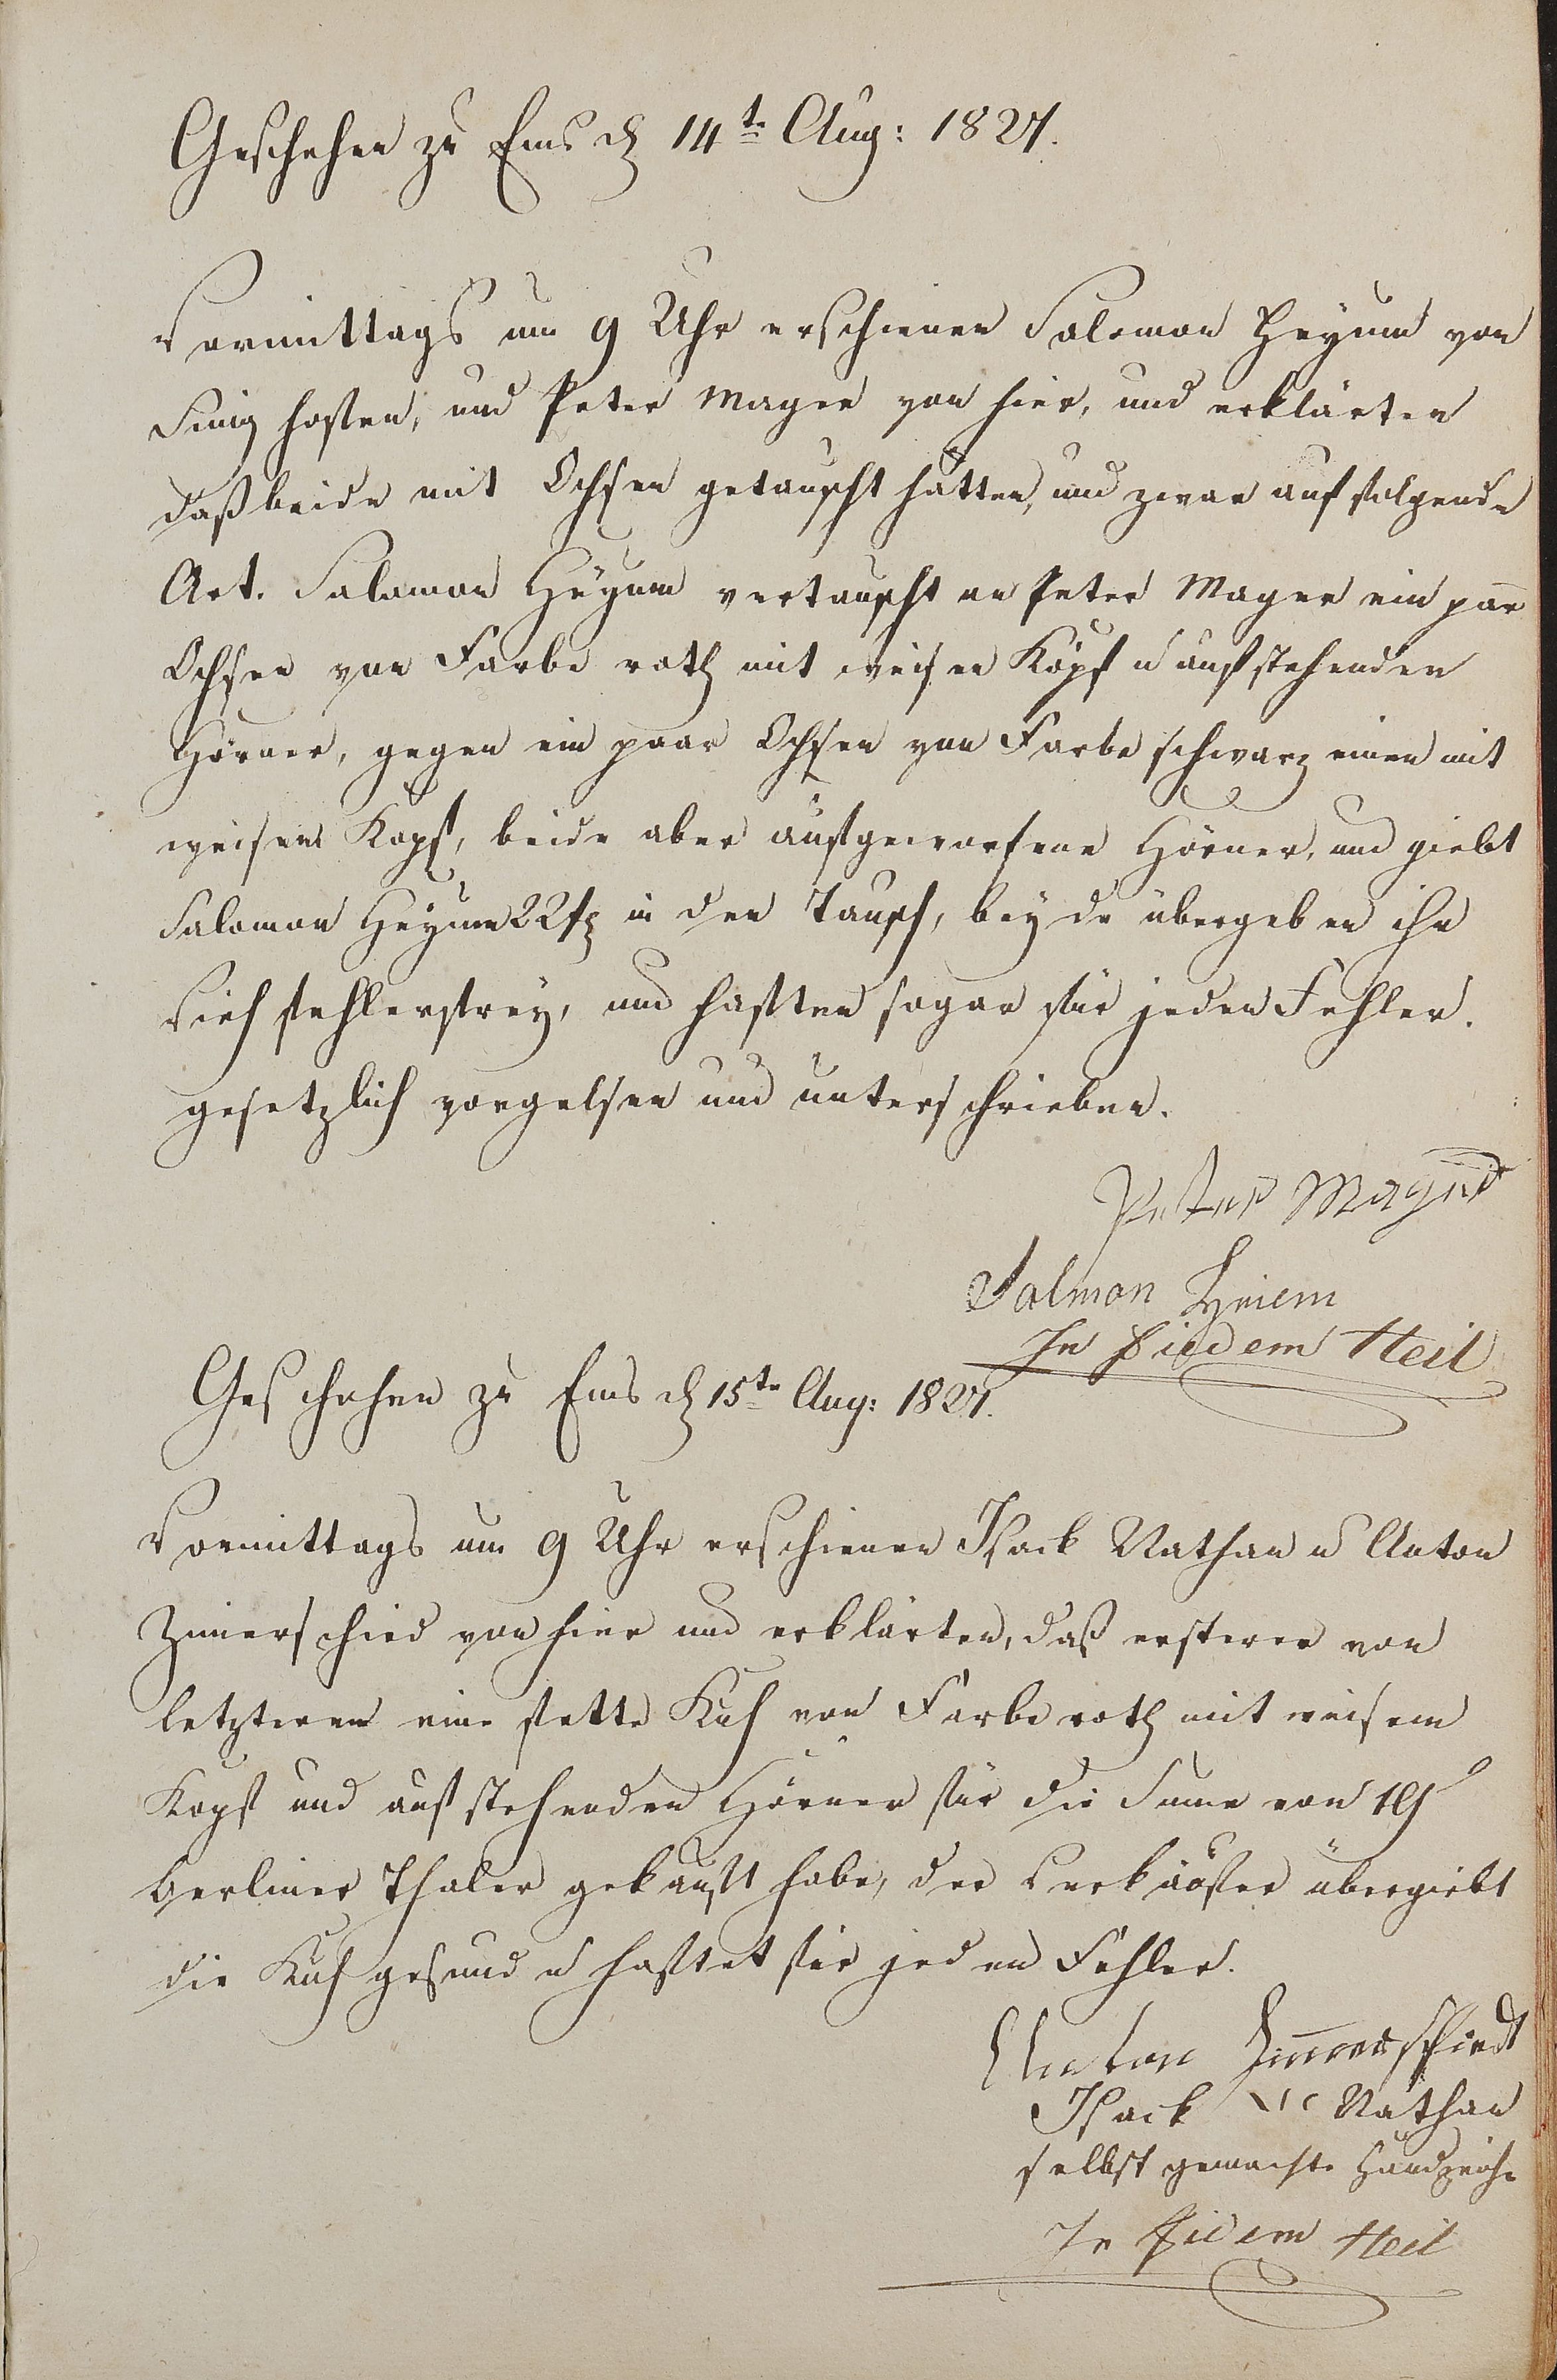 Geschehen zu Ems d 14te Aug: 1827.
Vormittags um 9 Uhr erschienen Salomon Heyum von
Singhofen, und Peter Mager von hier, und erklärten
daß beide mit Ochsen getauscht hätten, und zwar auf folgende
Art. Salomon Heyum vertauscht an Peter Mager ein par
Ochsen von Farbe roth mit weisen Köpf u aufstehenden
Hörner, gegen ein paar Ochsen von Farbe schwarz einen mit
weisem Kopf, beide aber aufgeworfene Hörner, und giebt
Salomon Heyum 22 f in den Tausch, beyde übergeben ihr
Vieh fehlerfrey, und haften sogar für jeden Fehler.
gesetzlich vorgelsen und unterschrieben.
Peter Mager
Salmon Heiem
In fiedem Heil
Geschehen zu Ems d 15te Aug: 1827.
Vormittags um 9 Uhr erschienen Isack Nathan u Anton
Zimerschied von hier und erklärten, daß ersterer von
letzterem eine fette Kuh von Farbe roth mit weisem
Kopf und aufstehenden Hörner für die Sume von 19
Berliner Thaler gekauft habe, der Verkäufer übergiebt
die Kuh gesund u haftet für jeden Fehler.
Anton Zimmerschiedt
Isack Nathan
selbst gemachte Handzeiche
In fidem Heil